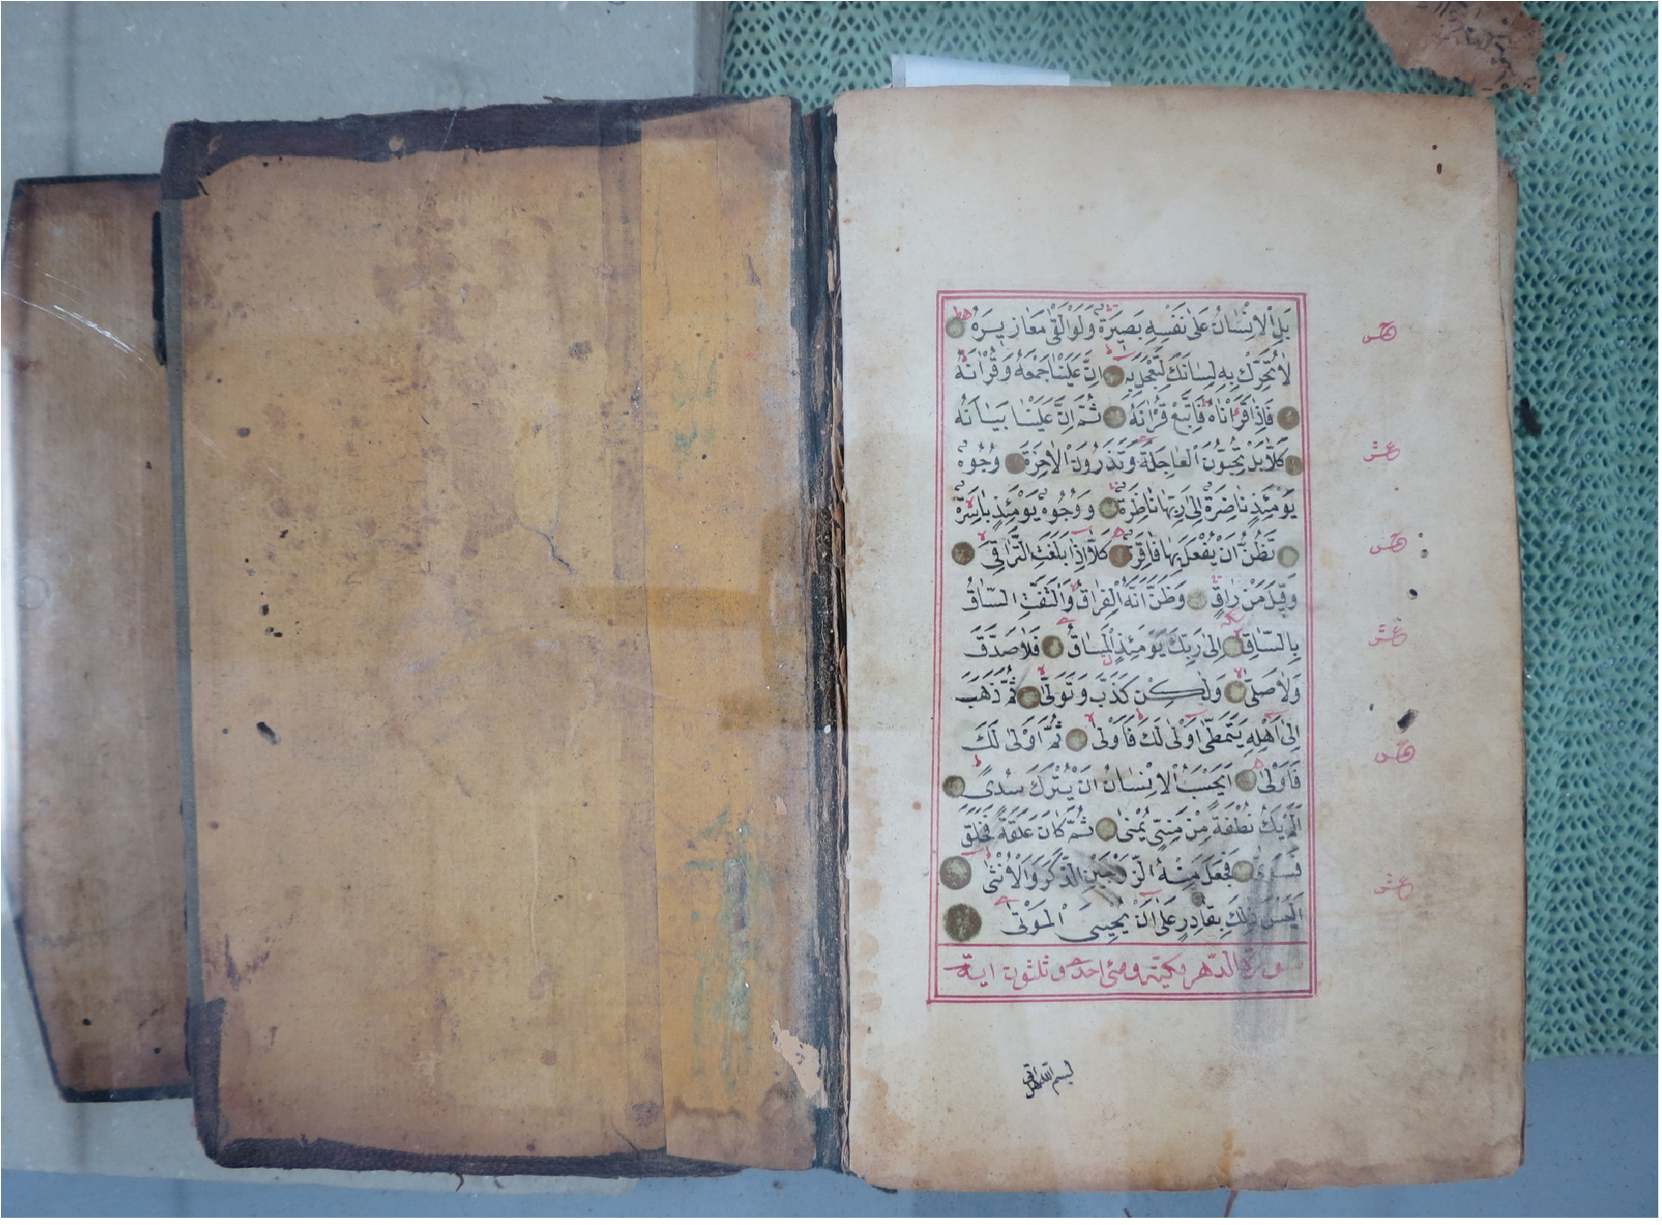 بَلِ الْاِنْسَانُ عَلٰى نَفْسِهٖ بَصِيرَةٌ وَلَوْ اَلْقٰى مَعَاذِيرَهُ
لَا تُحَرِّكْ بِهٖ لِسَانَكَ لِتَعْجَلَ بِهٖ اِنَّ عَلَيْنَا جَمْعَهُ وَقُرْاٰنَهُ
فَاِذَا قَرَاْنَاهُ فَاتَّبِعْ قُرْاٰنَهُ ثُمَّ اِنَّ عَلَيْنَا بَيَانَهُ
كَلَّا بَلْ تُحِبُّونَ الْعَاجِلَةَ وَتَذَرُونَ الْاٰخِرَةَ وُجُوهٌ
يَوْمَئِذٍ نَاضِرَةٌ اِلٰى رَبِّهَا نَاظِرَةٌ وَوُجُوهٌ يَوْمَئِذٍ بَاسِرَةٌ
تَظُنُّ اَنْ يُفْعَلَ بِهَا فَاقِرَةٌ كَلَّا اِذَا بَلَغَتِ التَّرَاقِىَ
وَقِيلَ مَنْ رَاقٍ وَظَنَّ اَنَّهُ الْفِرَاقُ وَالْتَفَّتِ السَّاقُ
بِالسَّاقِ اِلٰى رَبِّكَ يَوْمَئِذٍ الْمَسَاقُ فَلَا صَدَّقَ
وَلَا صَلّٰى وَلٰكِنْ كَذَّبَ وَتَوَلّٰى ثُمَّ ذَهَبَ
اِلٰى اَهْلِهٖ يَتَمَطّٰى اَوْلٰى لَكَ فَاَوْلٰى ثُمَّ اَوْلٰى لَكَ
فَاَوْلٰى اَيَحْسَبُ الْاِنْسَانُ اَنْ يُتْرَكَ سُدًى
اَلَمْ يَكُ نُطْفَةً مِنْ مَنِىٍّ يُمْنٰى ثُمَّ كَانَ عَلَقَةً فَخَلَقَ
فَسَوّٰى فَجَعَلَ مِنْهُ الزَّوْجَيْنِ الذَّكَرَ وَالْاُنْثٰى
اَلَيْسَ ذٰلِكَ بِقَادِرٍ عَلٰى اَنْ يُحْيِىَ الْمَوْتٰى
سورة الدّهر مكيّة وهى احدى وثلثون اية
بسم الله هل اتى